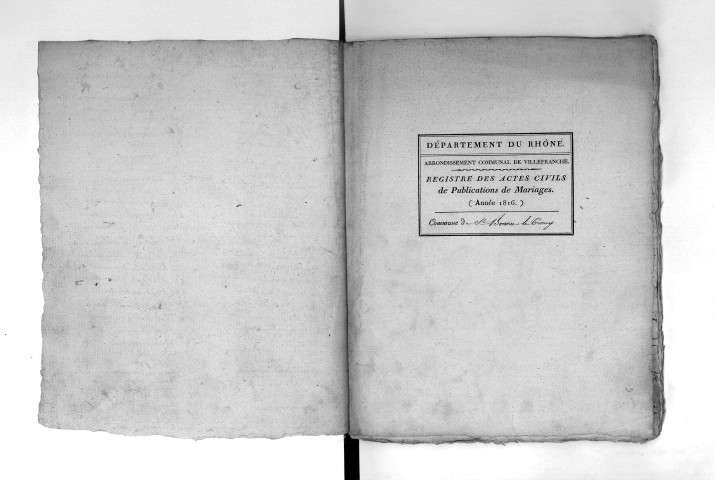 DÉPARTEMENT DU RHÔNE.
ARRONDISSEMENT COMMUNAL DE VILLEFRANCHE.
REGISTRE DES ACTES CIVILS
de Publications de Mariages.
( Année 1816. )
Commune de St Bonnet le Troncy